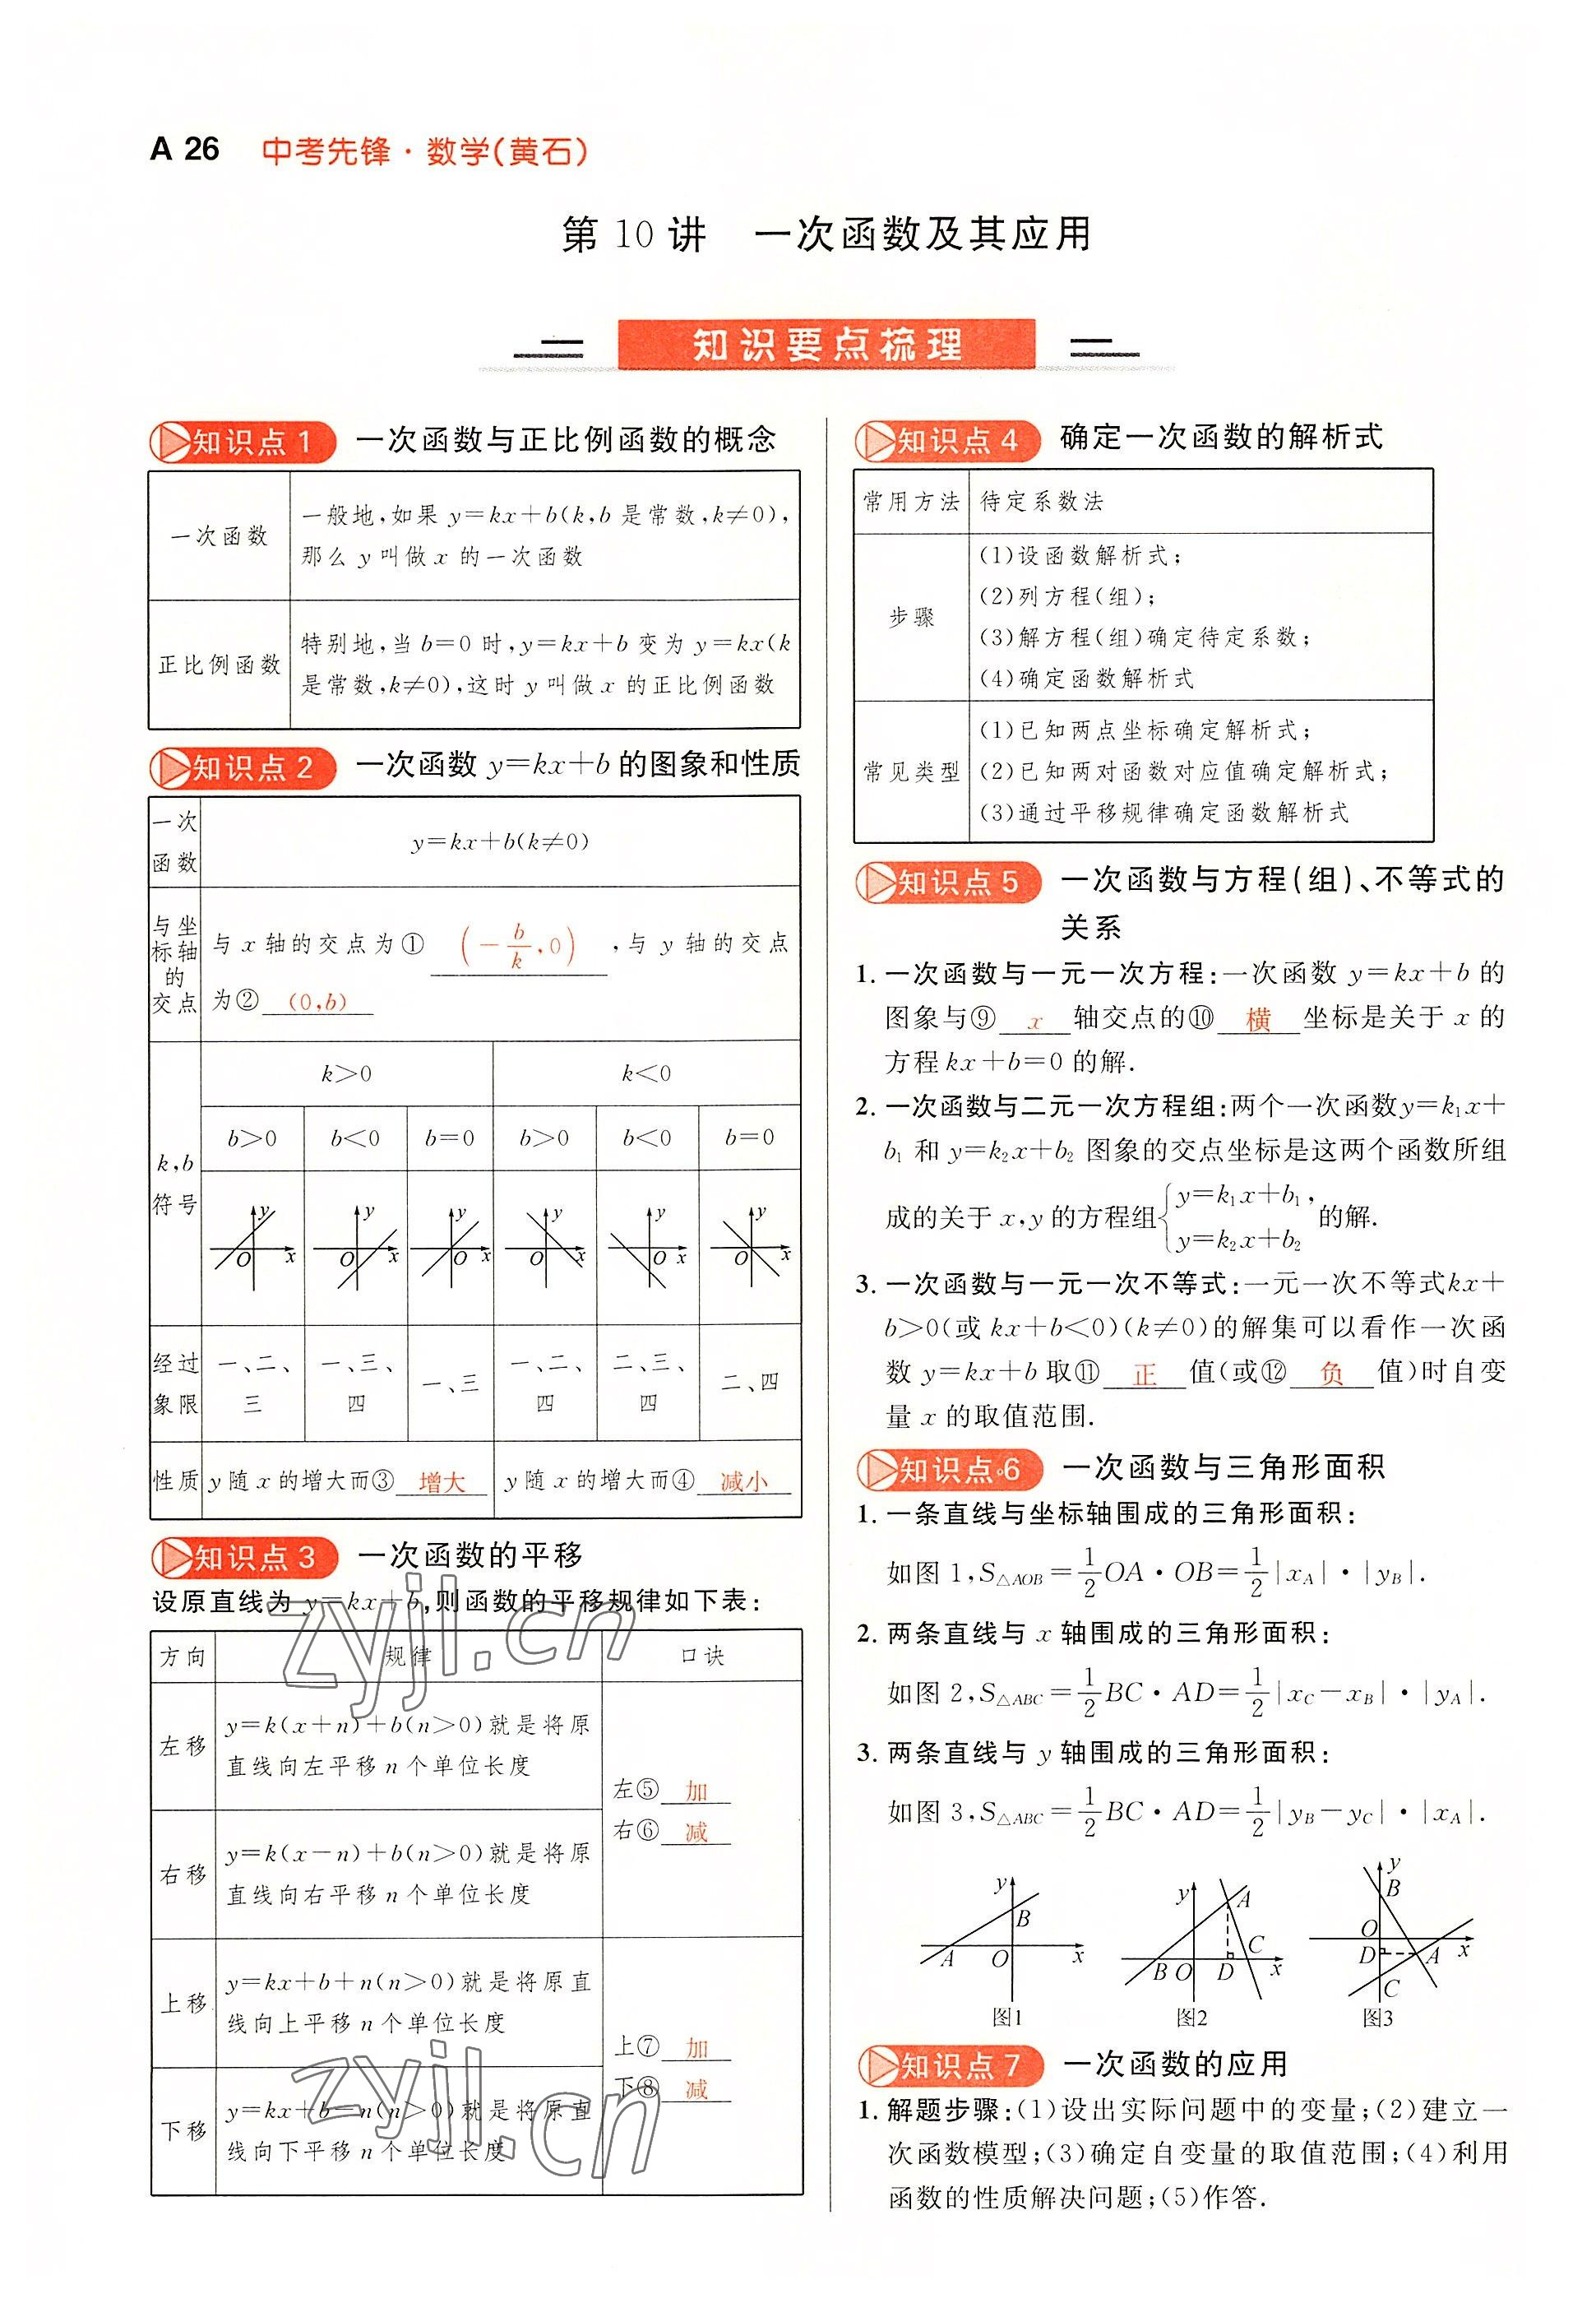 A 26 中考先锋·数学(黄石)
第 10 讲 一次函数及其应用
知识要点梳理
知识点 1 一次函数与正比例函数的概念
一次函数
一般地,如果 y=kx+b(k,b 是常数,k≠0),
那么 y 叫做 x 的一次函数
正比例函数
特别地,当 b=0 时,y=kx+b 变为 y=kx(k
是常数,k≠0),这时 y 叫做 x 的正比例函数
知识点 2 一次函数 y=kx+b 的图象和性质
一次
函数
y=kx+b(k≠0)
与坐
标轴
的
交点
与 x 轴的交点为① (-b/k,0) ,与 y 轴的交点
为② (0,b)
k,b
符号
k>0 k<0
b>0 b<0 b=0 b>0 b<0 b=0
y y y y y y
O x O x O x O x O x O x
经过
象限
一、二、
三
一、三、
四
一、三
一、二、
四
二、三、
四
二、四
性质 y 随 x 的增大而③ 增大 y 随 x 的增大而④ 减小
知识点 3 一次函数的平移
设原直线为 y=kx+b,则函数的平移规律如下表:
方向 规律 口诀
左移
y=k(x+n)+b(n>0)就是将原
直线向左平移 n 个单位长度
右移
y=k(x-n)+b(n>0)就是将原
直线向右平移 n 个单位长度
左⑤ 加
右⑥ 减
上移
y=kx+b+n(n>0)就是将原直
线向上平移 n 个单位长度
下移
y=kx+b-n(n>0)就是将原直
线向下平移 n 个单位长度
上⑦ 加
下⑧ 减
zyjl.cn
zyjl.cn
知识点 4 确定一次函数的解析式
常用方法 待定系数法
步骤
(1)设函数解析式;
(2)列方程(组);
(3)解方程(组)确定待定系数;
(4)确定函数解析式
常见类型
(1)已知两点坐标确定解析式;
(2)已知两对函数对应值确定解析式;
(3)通过平移规律确定函数解析式
知识点 5 一次函数与方程(组)、不等式的
关系
1. 一次函数与一元一次方程:一次函数 y=kx+b 的
图象与⑨ x 轴交点的⑩ 横 坐标是关于 x 的
方程 kx+b=0 的解.
2. 一次函数与二元一次方程组:两个一次函数y=k₁x+
b₁ 和 y=k₂x+b₂ 图象的交点坐标是这两个函数所组
成的关于 x,y 的方程组{y=k₁x+b₁, y=k₂x+b₂ 的解.
3. 一次函数与一元一次不等式:一元一次不等式kx+
b>0(或 kx+b<0)(k≠0)的解集可以看作一次函
数 y=kx+b 取⑪ 正 值(或⑫ 负 值)时自变
量 x 的取值范围.
知识点 6 一次函数与三角形面积
1. 一条直线与坐标轴围成的三角形面积:
如图 1,S△AOB=1/2 OA·OB=1/2|xA|·|yB|.
2. 两条直线与 x 轴围成的三角形面积:
如图 2,S△ABC=1/2 BC·AD=1/2|xC-xB|·|yA|.
3. 两条直线与 y 轴围成的三角形面积:
如图 3,S△ABC=1/2 BC·AD=1/2|yB-yC|·|xA|.
y B A O x
图1
y A C B O D x
图2
y B O D A x C
图3
知识点 7 一次函数的应用
1. 解题步骤:(1)设出实际问题中的变量;(2)建立一
次函数模型;(3)确定自变量的取值范围;(4)利用
函数的性质解决问题;(5)作答.